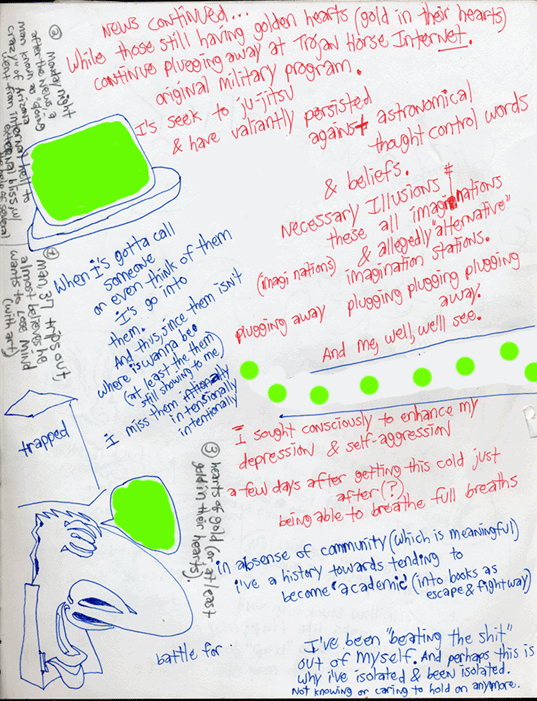 NEWS CONTINUED...
While those still having golden hearts (gold in their hearts)
continue plugging away at Trojan Horse Internet.
original military program.
I's seek to ju-jitsu
& have valiantly persisted
against astronomical
thought control words
& beliefs.
Necessary Illusions &
these all imaginations
& allegedly "alternative"
(imagi nations) imagination stations.
plugging away plugging plugging plugging
away.
And me, well, we'll see.
I sought consciously to enhance my
depression & self-aggression
a few days after getting this cold just
after (?)
being able to breathe full breaths
in absense of community (which is meaningful)
i've a history towards tending to
become 'academic' (into books as
escape & fight way)
I've been "beating the shit"
out of myself. And perhaps this is
why i've isolated & been isolated.
Not knowing or caring to hold on anymore.
When I's gotta call
someone
or even think of them
I's go into
them.
And this, since them isn't
where i's wanna be
(at least the them
still showing to me)
i miss them
intensionally
intentionally
trapped
battle for
② Mostly night
after the Nevus, a
man known as "going
crazy" of Arizona
sent from Internet hell to
external bliss, w/
the help of several
① Man, 37, trips out,
almost believes he
wants to lose mind
(with art)
③ hearts of gold (or at least
gold in their hearts)